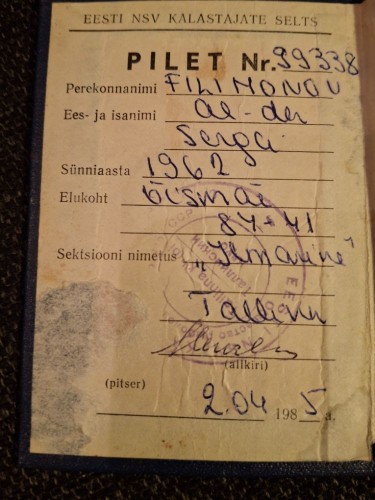 EESTI NSV KALASTAJATE SELTS
PILET Nr. 99338
Perekonnanimi FILIMONOV
Ees- ja isanimi Al-der
Sergei
Sünniaasta 1962
Elukoht Õismäe
87-41
Sektsiooni nimetus „Ilmarine"
Tallinn
(allkiri)
(pitser)
2.04 1985 a.